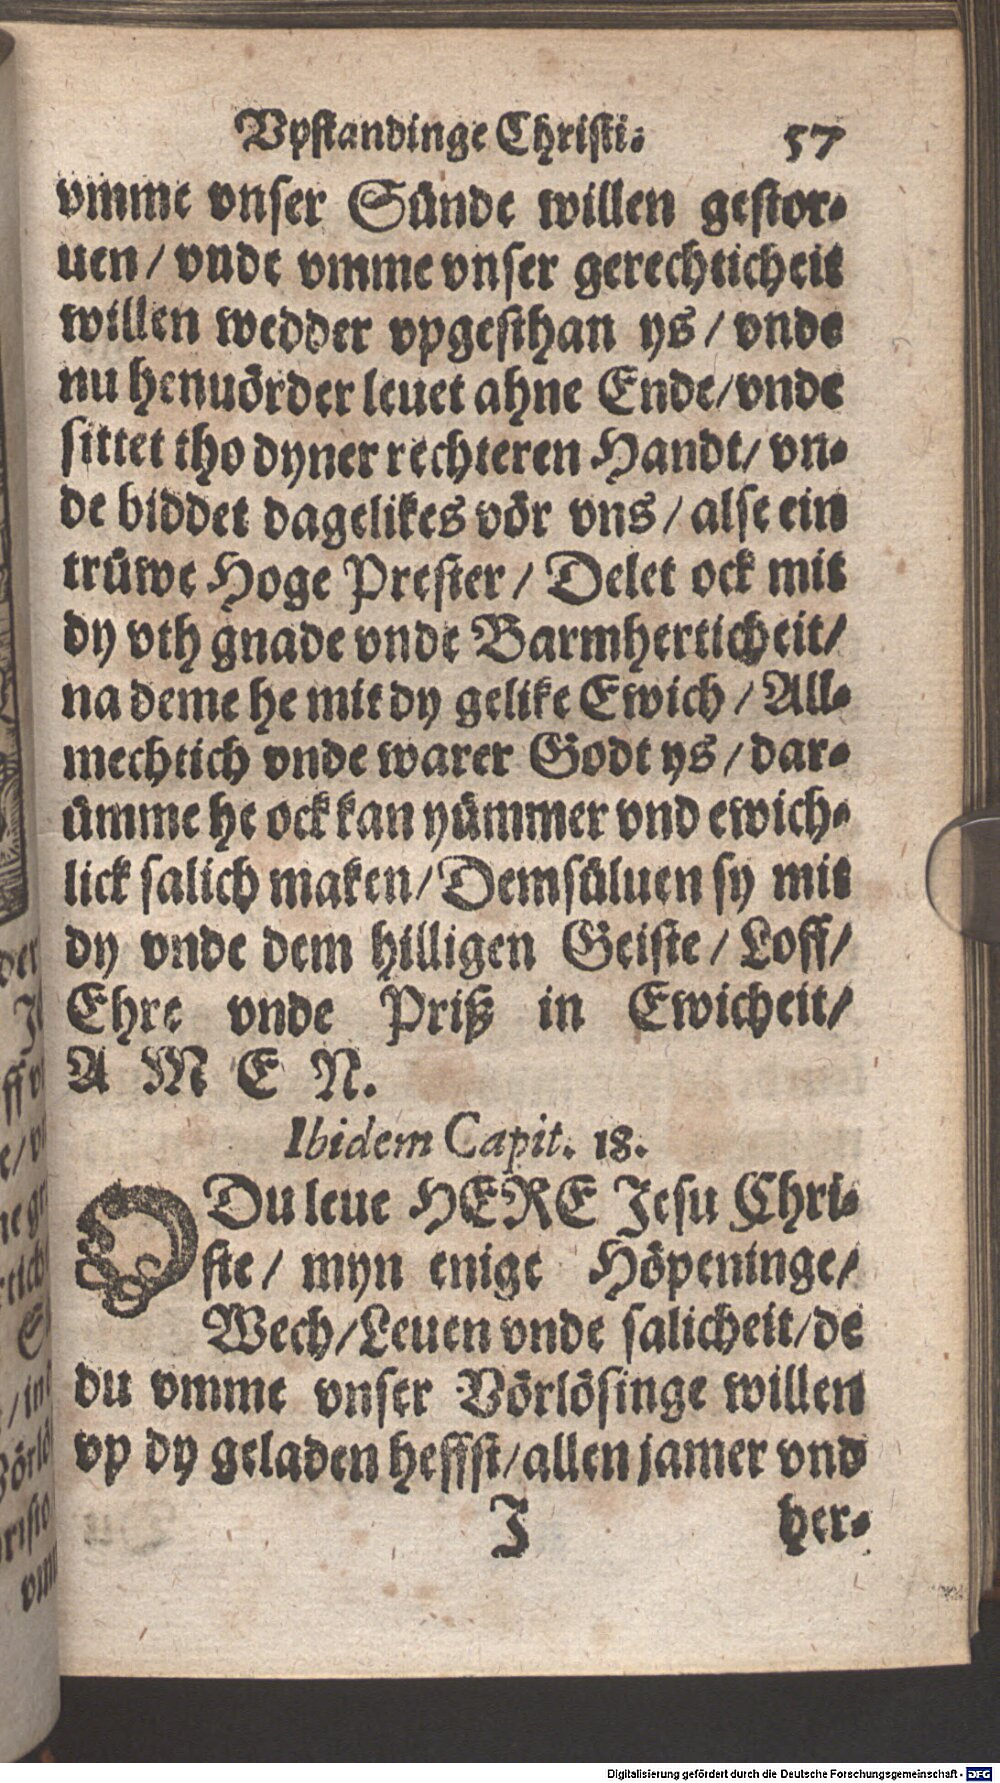 Vpstandinge Christi. 57
vmme vnser Sünde willen gestor-
uen / vnde vmme vnser gerechticheit
willen wedder vpgesthan ys / vnde
nu henuörder leuet ahne Ende/vnde
sittet tho dyner rechteren Handt/ vn-
de biddet dagelikes vör vns / alse ein
trüwe Hoge Prester / Delet ock mit
dy vth gnade vnde Barmherticheit/
na deme he mit dy gelike Ewich / All-
mechtich vnde warer Godt ys / dar-
ümme he ock kan yümmer vnd ewich-
lick salich maken/ Demsüluen sy mit
dy vnde dem hilligen Geiste / Loff/
Ehre vnde Priß in Ewicheit/
A M E N.
Ibidem Capit. 18.
O Du leue HERE Jesu Chri-
ste / myn enige Höpeninge/
Wech/Leuen vnde salicheit/de
du vmme vnser Vörlösinge willen
vp dy geladen heffst/allen jamer vnd
J her-
Digitalisierung gefördert durch die Deutsche Forschungsgemeinschaft - DFG